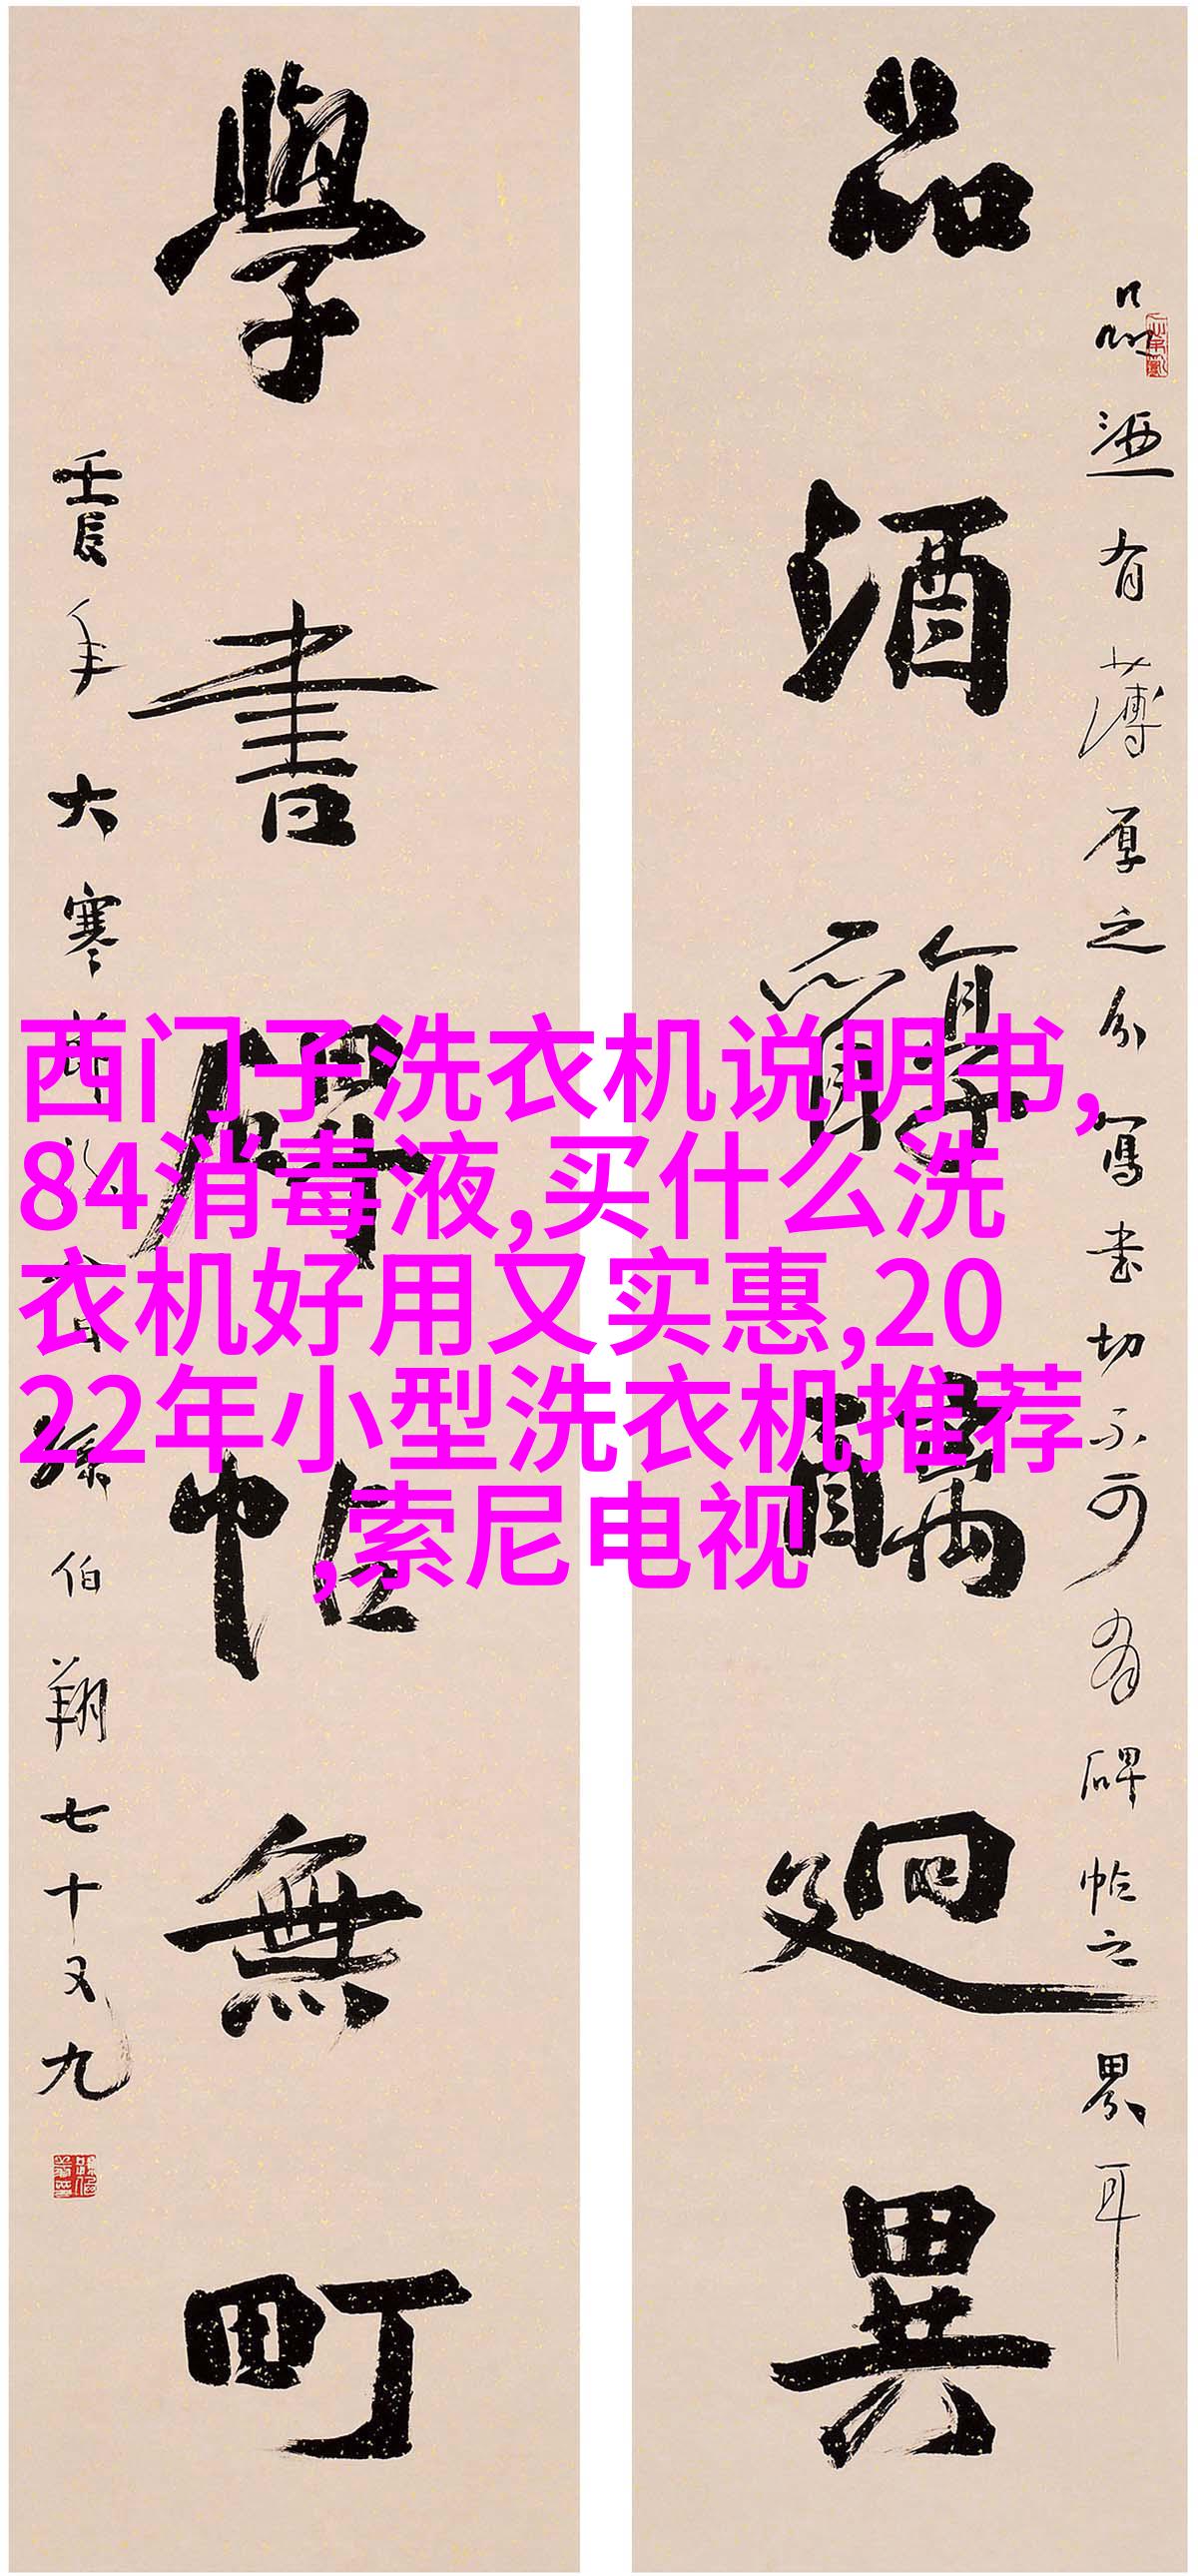 品酒有薄厚之分寫書切不可有碑帖之界耳
品酒醇醨廻異
學書碑帖無町
壬辰年大寒節孫伯翔七十又九
西门子洗衣机说明书,
84消毒液,买什么洗
衣机好用又实惠,20
22年小型洗衣机推荐
,索尼电视